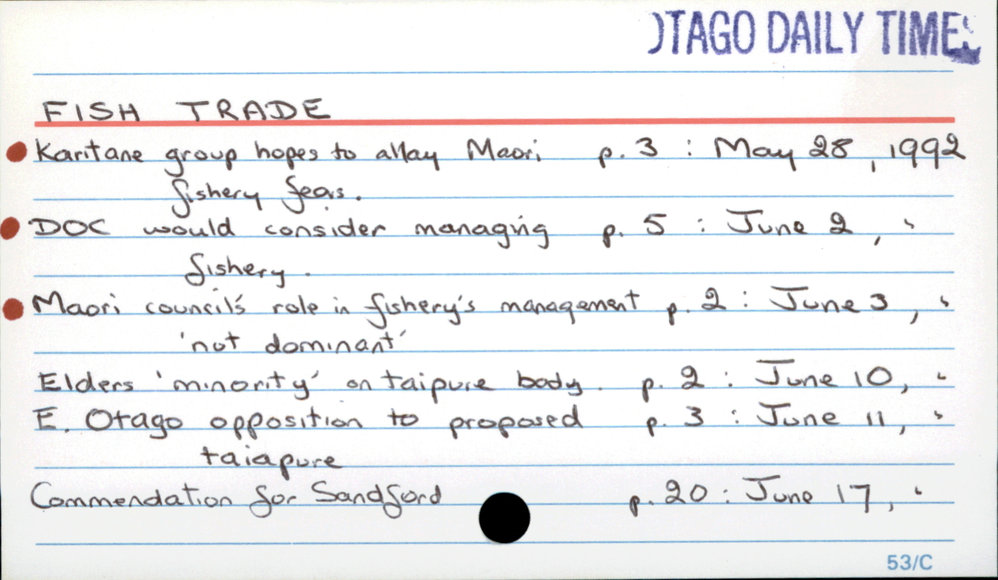 OTAGO DAILY TIMES
FISH TRADE
Karitane group hopes to allay Maori p. 3 : May 28, 1992
fishery fears.
DOC would consider managing p. 5 : June 2, "
fishery.
Maori council's role in fishery's management p. 2 : June 3, "
'not dominant'
Elders 'minority' on taipure body. p. 2 : June 10, "
E. Otago opposition to proposed p. 3 : June 11, "
taiapure
Commendation for Sandford p. 20 : June 17, "
53/C